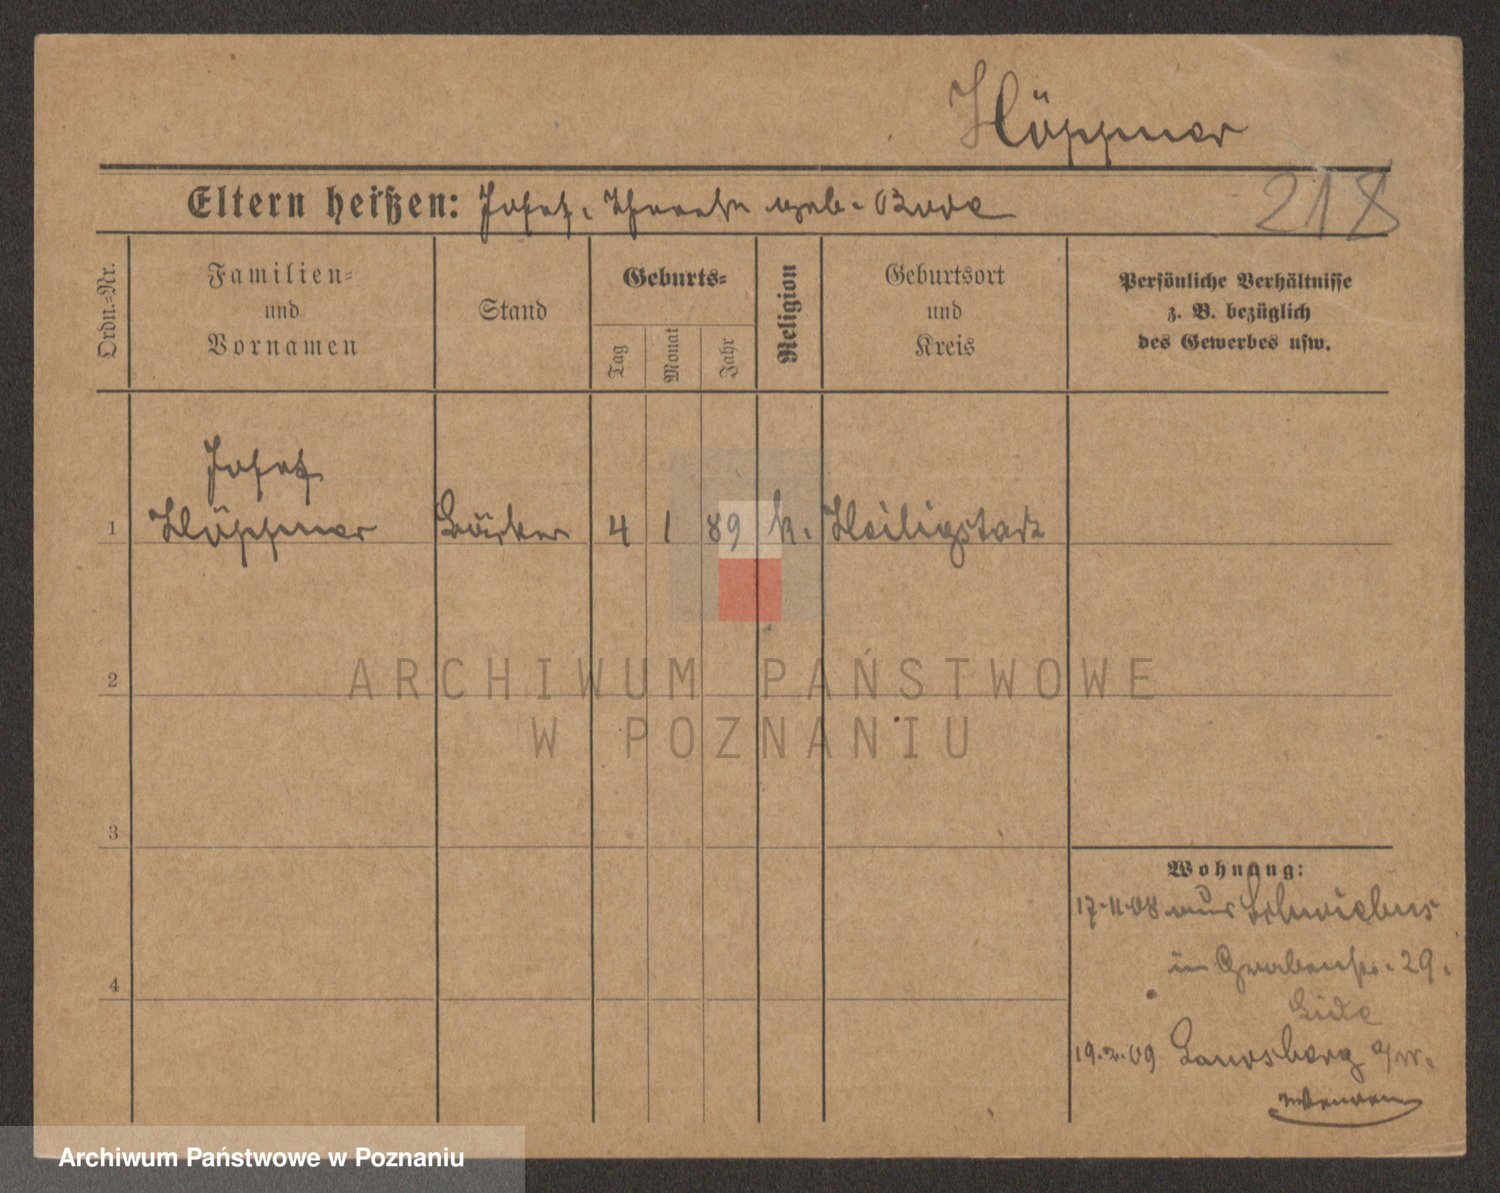 Höppner
Eltern heißen: Josef, Therese geb. Bode
218
Ordn.-Nr.
Familien-
und
Vornamen
Stand
Geburts-
Tag
Monat
Jahr
Religion
Geburtsort
und
Kreis
Persönliche Verhältnisse
z. B. bezüglich
des Gewerbes usw.
Josef
1 Höppner Bäcker 4 1 89 k. Heiligstadt
2
ARCHIWUM PAŃSTWOWE
W POZNANIU
3
4
Wohnung:
17.11.08 aus Schwiebus
in Grabenstr. 29.
19.2.09 Landsberg a/W.
Archiwum Państwowe w Poznaniu